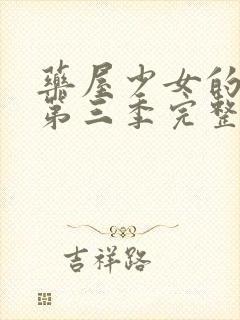 药屋少女的
第三季完整
吉祥路